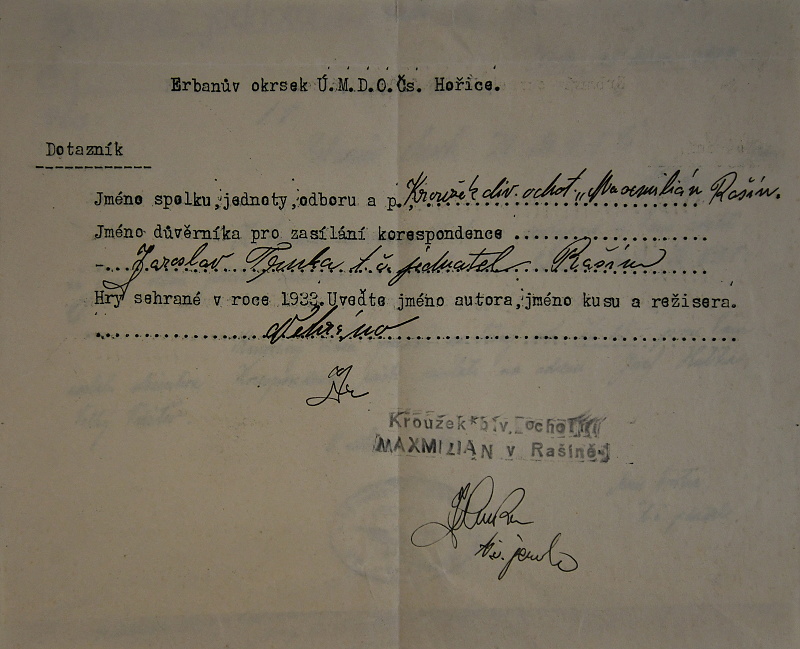 Erbanův okrsek Ú.M.D.O.Čs. Hořice.
Dotazník
Jméno spolku, jednoty, odboru a p. Kroužek div. ochot. „Maxmilián Rašín.
Jméno důvěrníka pro zasílání korespondence
Jaroslav t. č. jednatel Rašín
Hry sehrané v roce 1933. Uveďte jméno autora, jméno kusu a režisera.
Kroužek div. ochot
MAXMILIAN v Rašíně